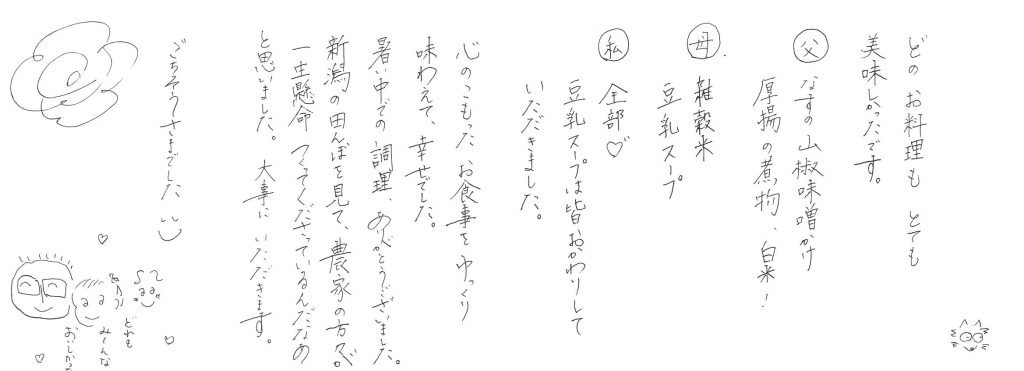 どのお料理も とても
美味しかったです。
父 なすの山椒味噌かけ
厚揚の煮物、白米！
母 雑穀米
豆乳スープ
私 全部♡
豆乳スープは皆おかわりして
いただきました。
心のこもった お食事を ゆっくり
味わえて、幸せでした。
暑い中での 調理、ありがとうございました。
新潟の田んぼを見て、農家の方々が
一生懸命 つくってくださっているんだなあ
と思いました。大事に いただきます。
ごちそうさまでした
どれも
み〜んな